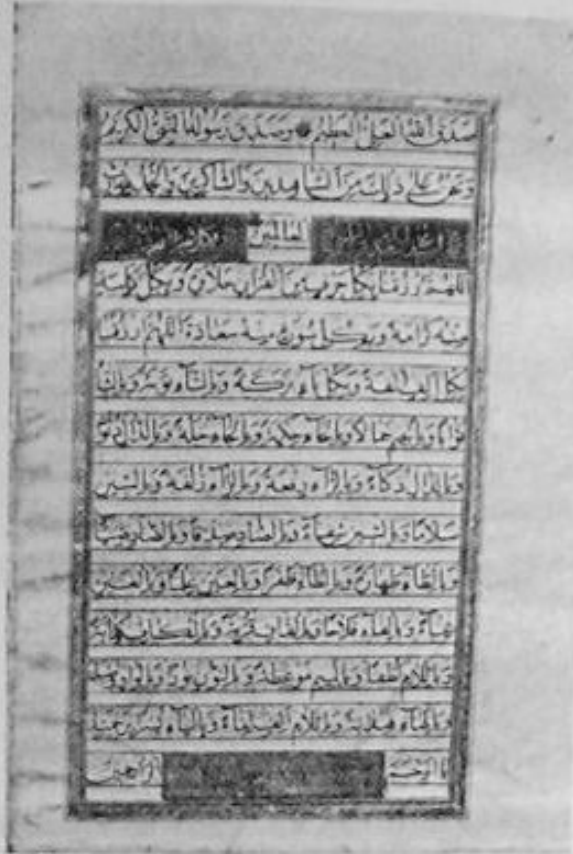 صدق الله العلي العظيم وصدق رسوله النبي الكريم
ونحن على ذلك من الشاهدين والشاكرين والحمد
العالمين
اللهم ارزقنا بكل حرف من القرآن حلاوة وبكل كلمة
منه كرامة وبكل سورة منه سعادة اللهم ارزقنا
بكل الف الفة وبكل باء بركة وبالتاء توبة وبالثا
ثوابا وبالجيم جمالا وبالحاء حكمة وبالخاء خلة وبالدال
وبالذال ذكاء وبالراء رفعة وبالزاء زلفة وبالسين
سلاما وبالشين شفاء وبالصاد صدقا وبالضاد ضياء
وبالطاء طهارة وبالظاء ظفرا وبالعين علما وبالغين
وبالفاء فلاحا وبالقاف قربة وبالكاف كفاية
وباللام لطفا وبالميم موعظة وبالنون نورا وبالواو وصلة
وبالهاء هداية وباللام الف لقاء وبالياء يسرا برحمتك
يا ارحم
الراحمين